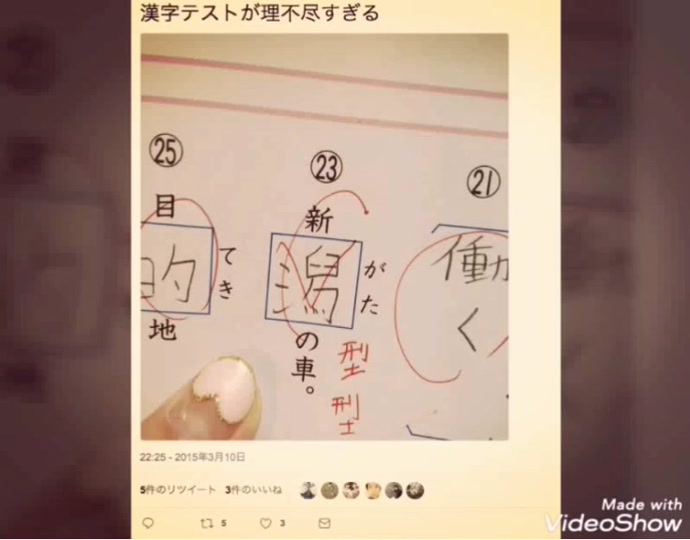 漢字テストが理不尽すぎる
㉑
働
く
㉓
新
潟
がた
の車。
型
型
㉕
目
的
てき
地
22:25 - 2015年3月10日
5件のリツイート 3件のいいね
5 3
Made with
VideoShow